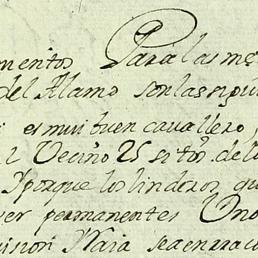 mentos Para las me
del Alamo son las sigui
es mui buen cavallero,
Vecino 25 sitos. de la
Y porque los linderos, qu
ser permanentes Uno
se enra co